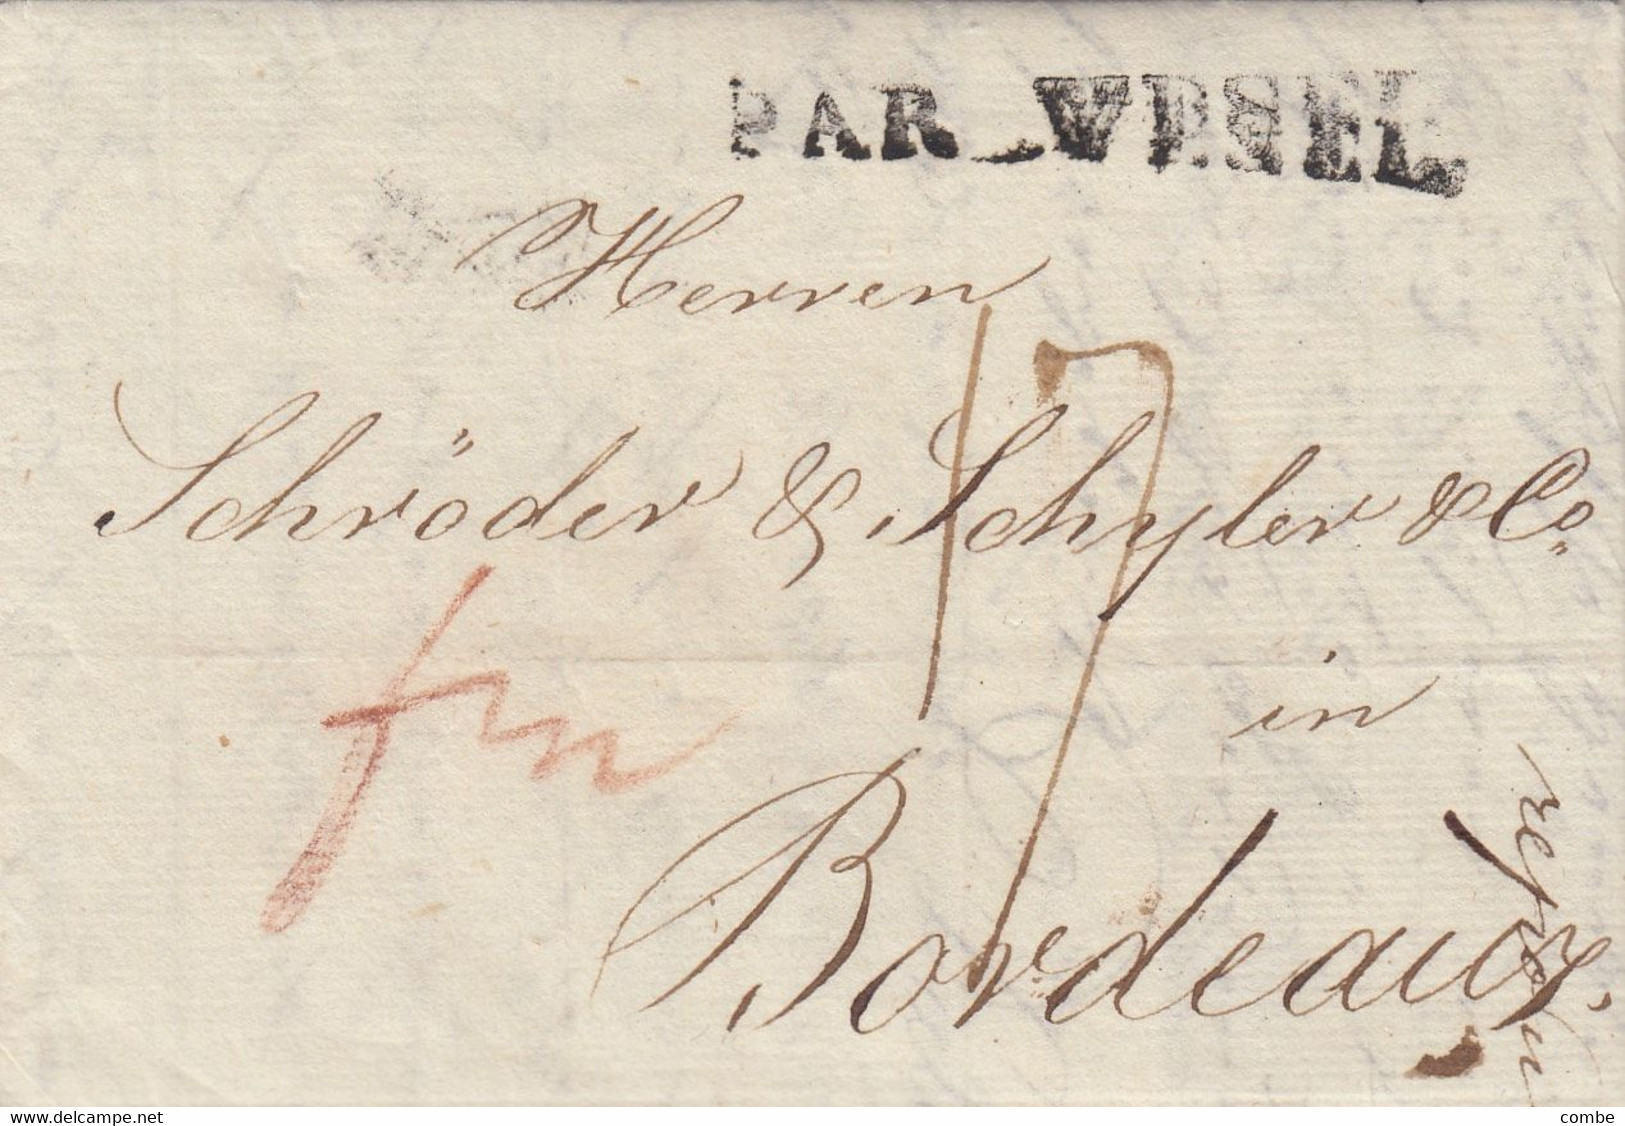 PAR_WESEL.
Herren
17
Schröder & Schyler & Co.
in
Bordeaux.
delcampe.net
combe